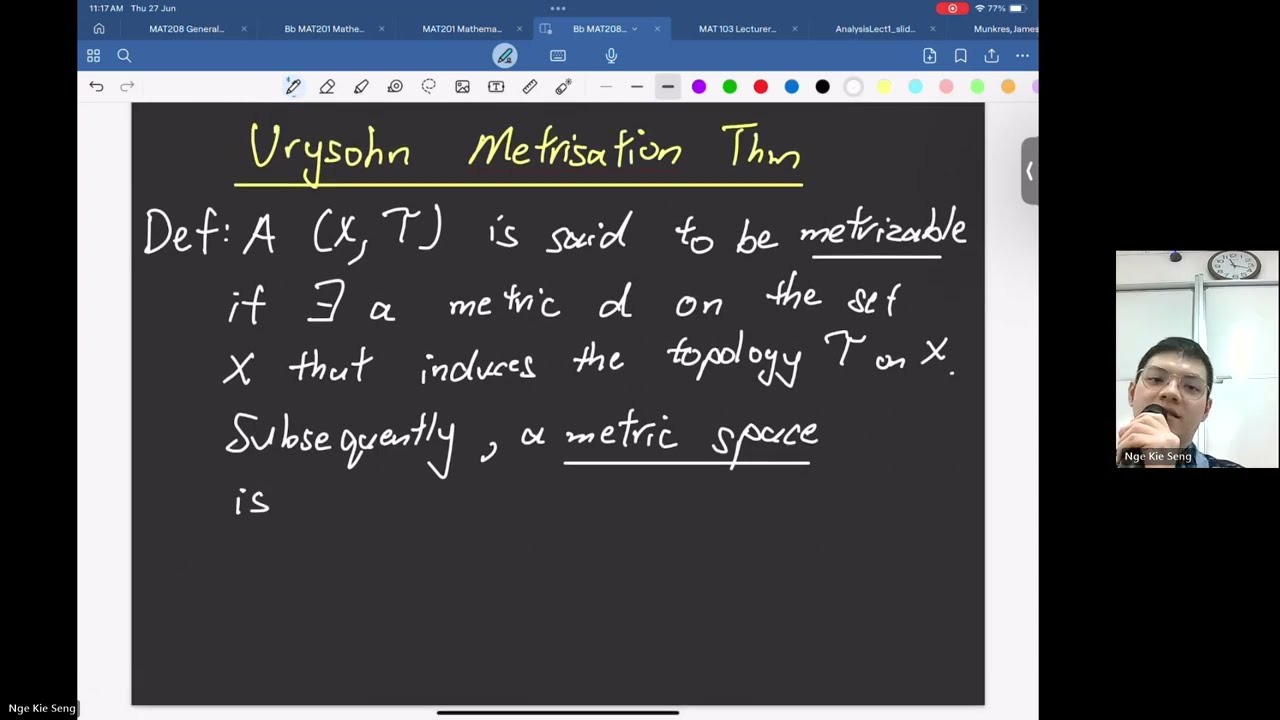 11:17 AM Thu 27 Jun
77%
MAT208 General...
Bb MAT201 Mathe...
MAT201 Mathema...
Bb MAT208...
MAT103 Lecturer...
AnalysisLect1_slid...
Munkres,James
Urysohn Metrisation Thm
Def: A (X, T) is said to be metrizable
if ∃ a metric d on the set
X that induces the topology T on X.
Subsequently, a metric space
is
Nge Kie Seng
Nge Kie Seng